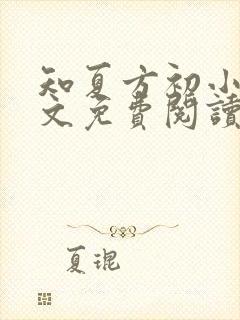 知夏方初小
文免費閱讀
夏琨